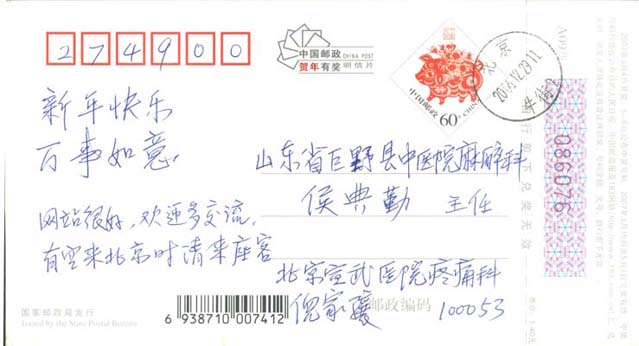 274900
中国邮政 CHINA POST
贺年有奖 明信片
中国邮政 CHINA
60分
北京
2006.12.29.11
新年快乐
万事如意
山东省巨野县中医院麻醉科
侯典勤 主任
网站很好，欢迎多交流，
有空来北京时请来座客
北京宣武医院疼痛科
倪家骧 邮政编码 100053
国家邮政局发行
Issued by the State Postal Bureau
6 938710 007412
086076